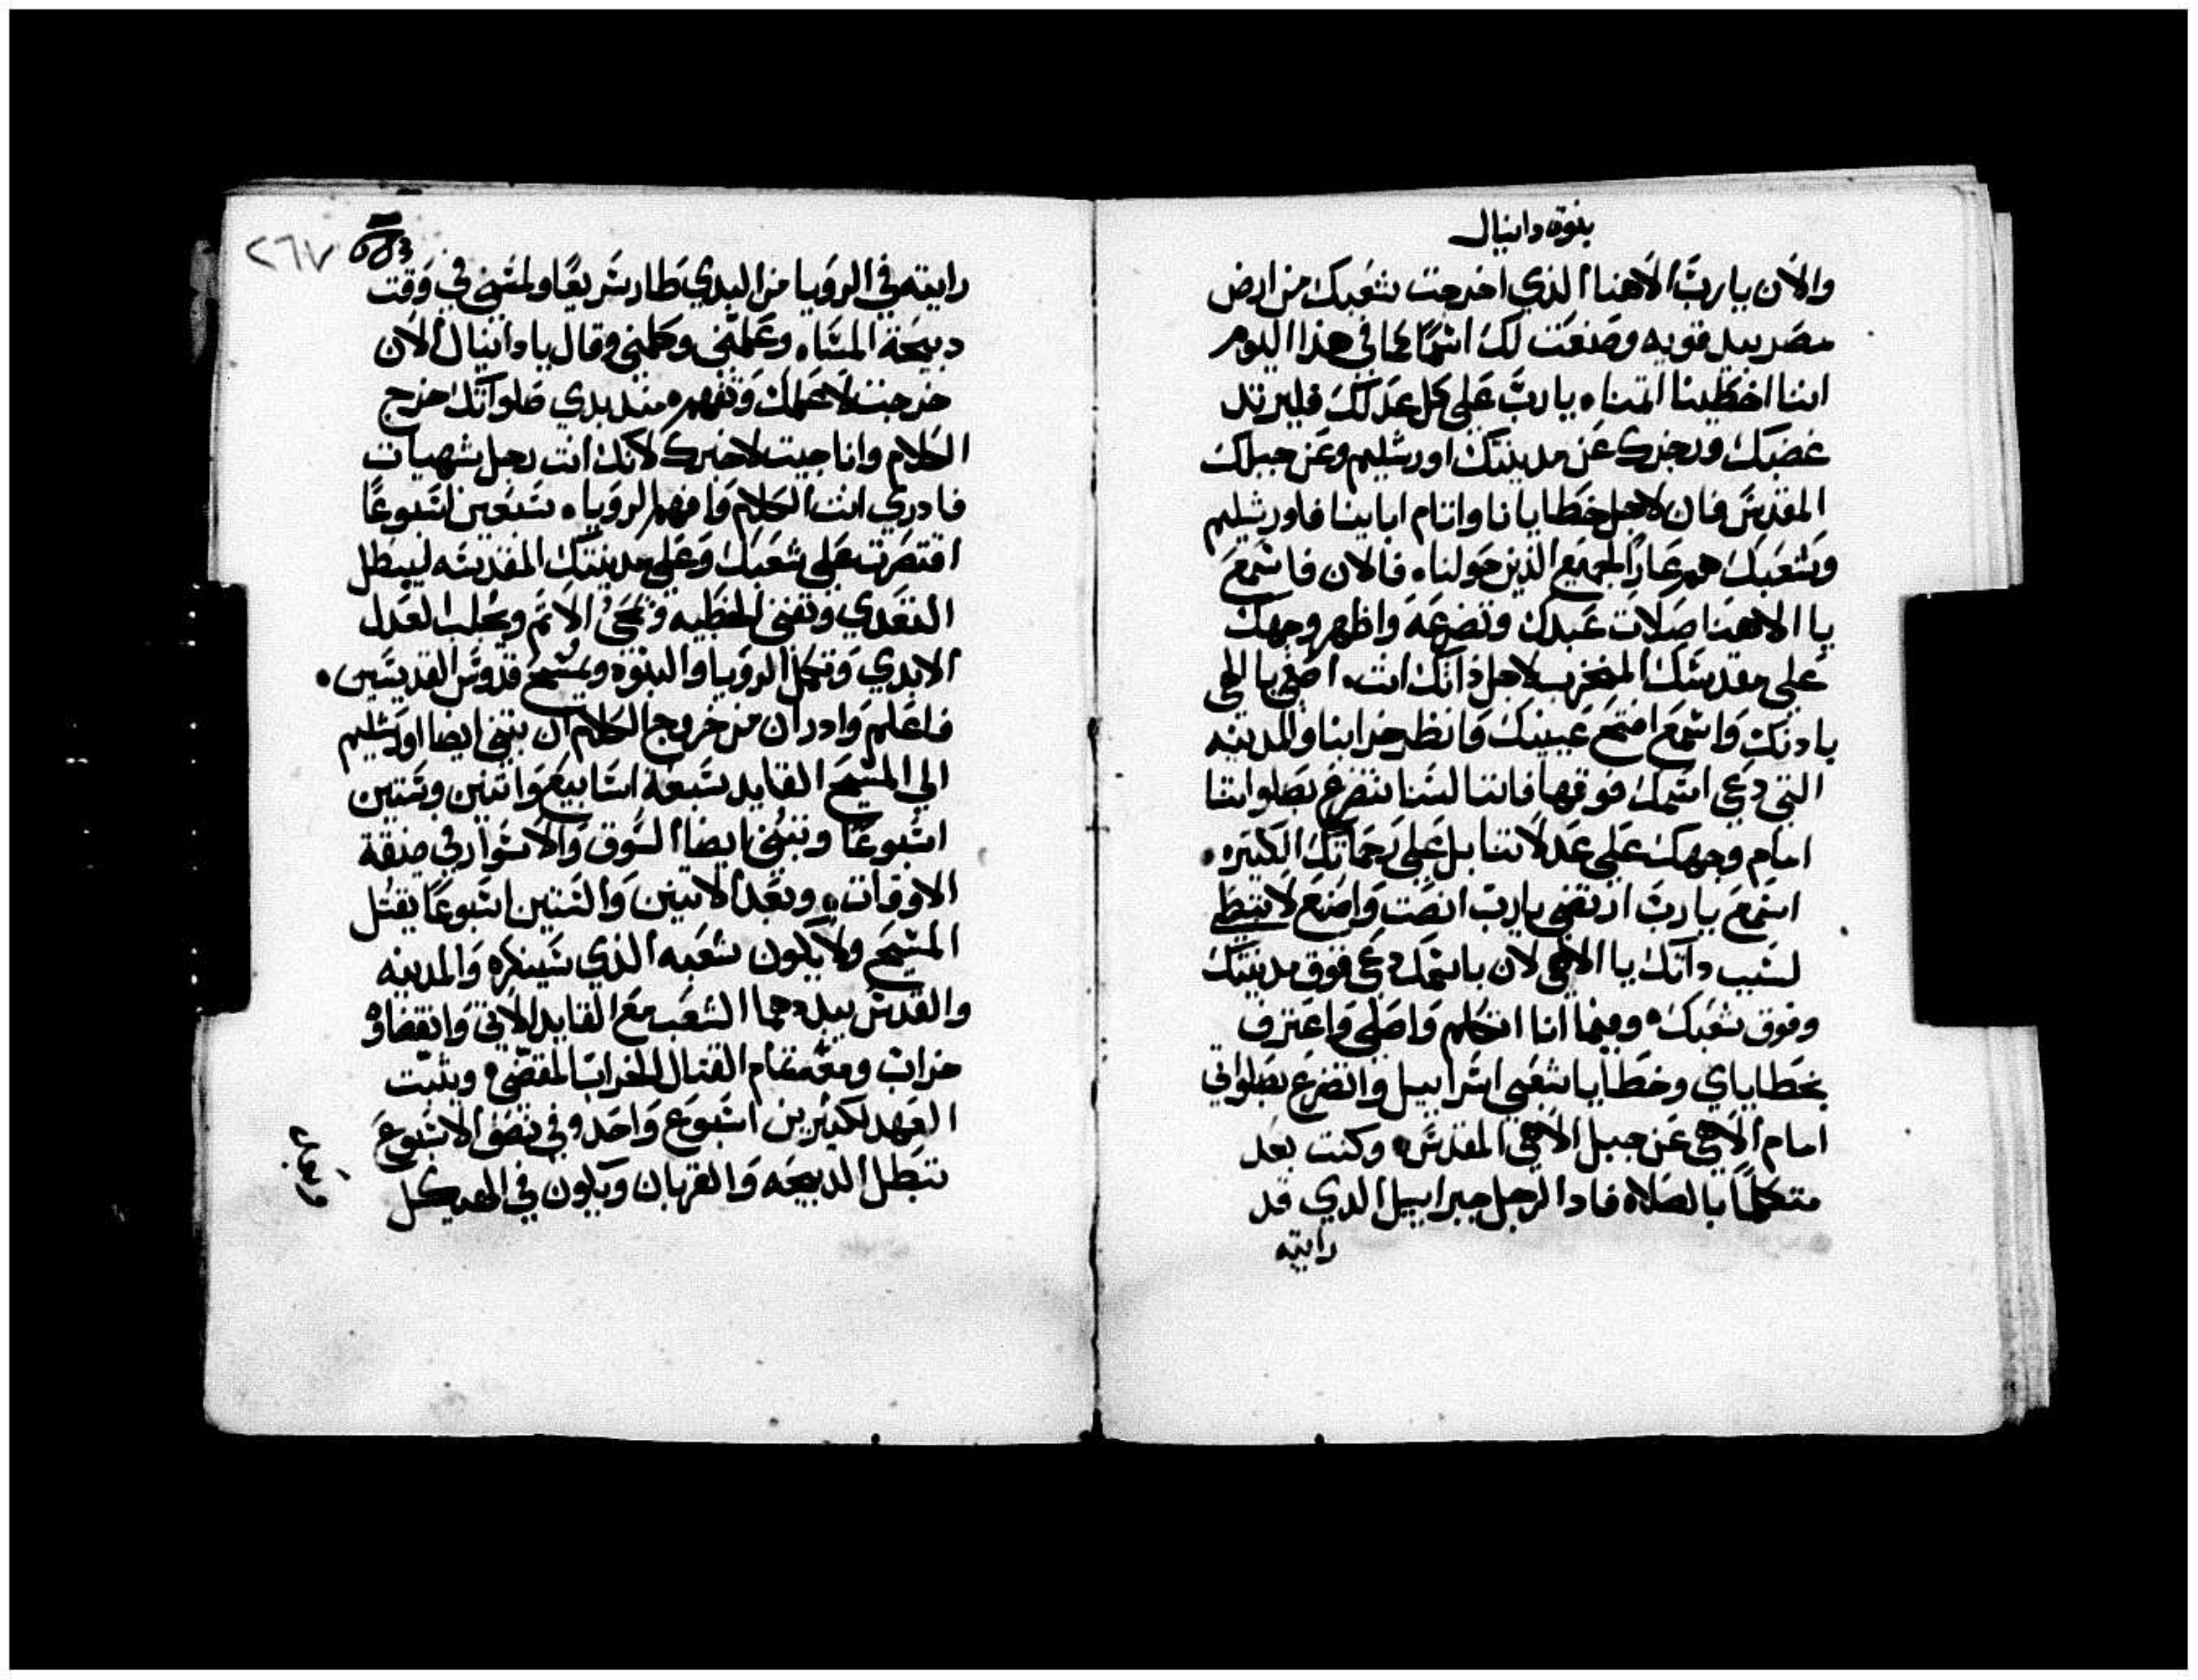 بنوة دانيال
والان يا رب الاهنا الذي اخرجت شعبك من ارض
مصر بيد قويه وصنعت لك اسمًا كما في هذا اليوم
اننا اخطينا اتمنا. يا رب على كل عدلك فليرتد
غضبك ورجزك عن مدينتك اورشليم وعن جبلك
المقدس فان لاجل خطايانا واتام ابائنا فاورشليم
وشعبك هم عارًا لجميع الذين حولنا. فالان فاسمع
يا الاهنا صلات عبدك وتضرعه واظهر وجهك
على مقدسك المخرب لاجل ذاتك انت. اصغي يا الهي
بادنك واسمع افتح عينيك وانظر خرابنا والمدينه
التي دعي اسمك فوقها فاننا لسنا نتضرع بصلواتنا
امام وجهك على عدلاتنا بل على رحماتك الكتيره.
استمع يا رب ارتضي يا رب انصت واصنع لا تبطي
لسبب داتك يا الاهي لان باسمك دعي فوق مدينتك
وفوق شعبك. وفيما انا اتكلم واصلي واعترف
بخطاياي وخطايا شعبي اسراييل واتضرع بصلواتي
امام الاهي عن جبل الاهي المقدس. وكنت بعد
متكلمًا بالصلاة فادا الرجل جبراييل الدي قد
رايته
٢٦٧
رايته في الرويا من البدي طار سريعًا ولمسني في وقت
دبيحة المساء. وعلمني وكلمني وقال يا دانيال الان
خرجت لاعلمك وتفهم. مند بدي صلواتك خرج
الكلام وانا جيت لاخبرك لانك انت رجل شهيات
فادري انت الكلام وافهم الرويا. سبعين اسبوعًا
اقتصرت على شعبك وعلى مدينتك المقدسه ليبطل
التعدي وتفني الخطيه وتمحى الاتم ويجلب العدل
الابدي وتكمل الرويا والبنوه ويمسح قدوس القديسين.
فاعلم وادر ان من خروج الكلام ان يبني ايضا اورشليم
الي المسيح القايد سبعة اسابيع واتنين وستين
اسبوعًا وتبني ايضا السوق والاسوار في ضيقة
الاوقات. وبعد الاتنين والستين اسبوعًا يقتل
المسيح ولا يكون شعبه الذي سينكره والمدينه
والقدس يبيدهما الشعب مع القايد الاتي وانقضاوه
خراب ومعه تمام القتال الخراب المقضي. ويثبت
العهد لكثيرين اسبوع واحد وفي نصف الاسبوع
تبطل الدبيحه والقربان ويكون في الهيكل